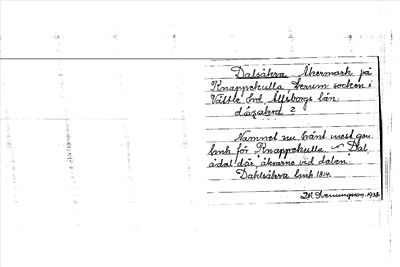 Dalsåkra, Åkermark på
Knappekulla, Lerum socken i
Vättle hd, Älfsborgs län.
dálsåkra 2
Namnet nu känt mest gen.
bruk för Knappekulla. Dal,
ådal där åkrarne vid dalen.
Dahlsåkra lmk. 1814.
1932